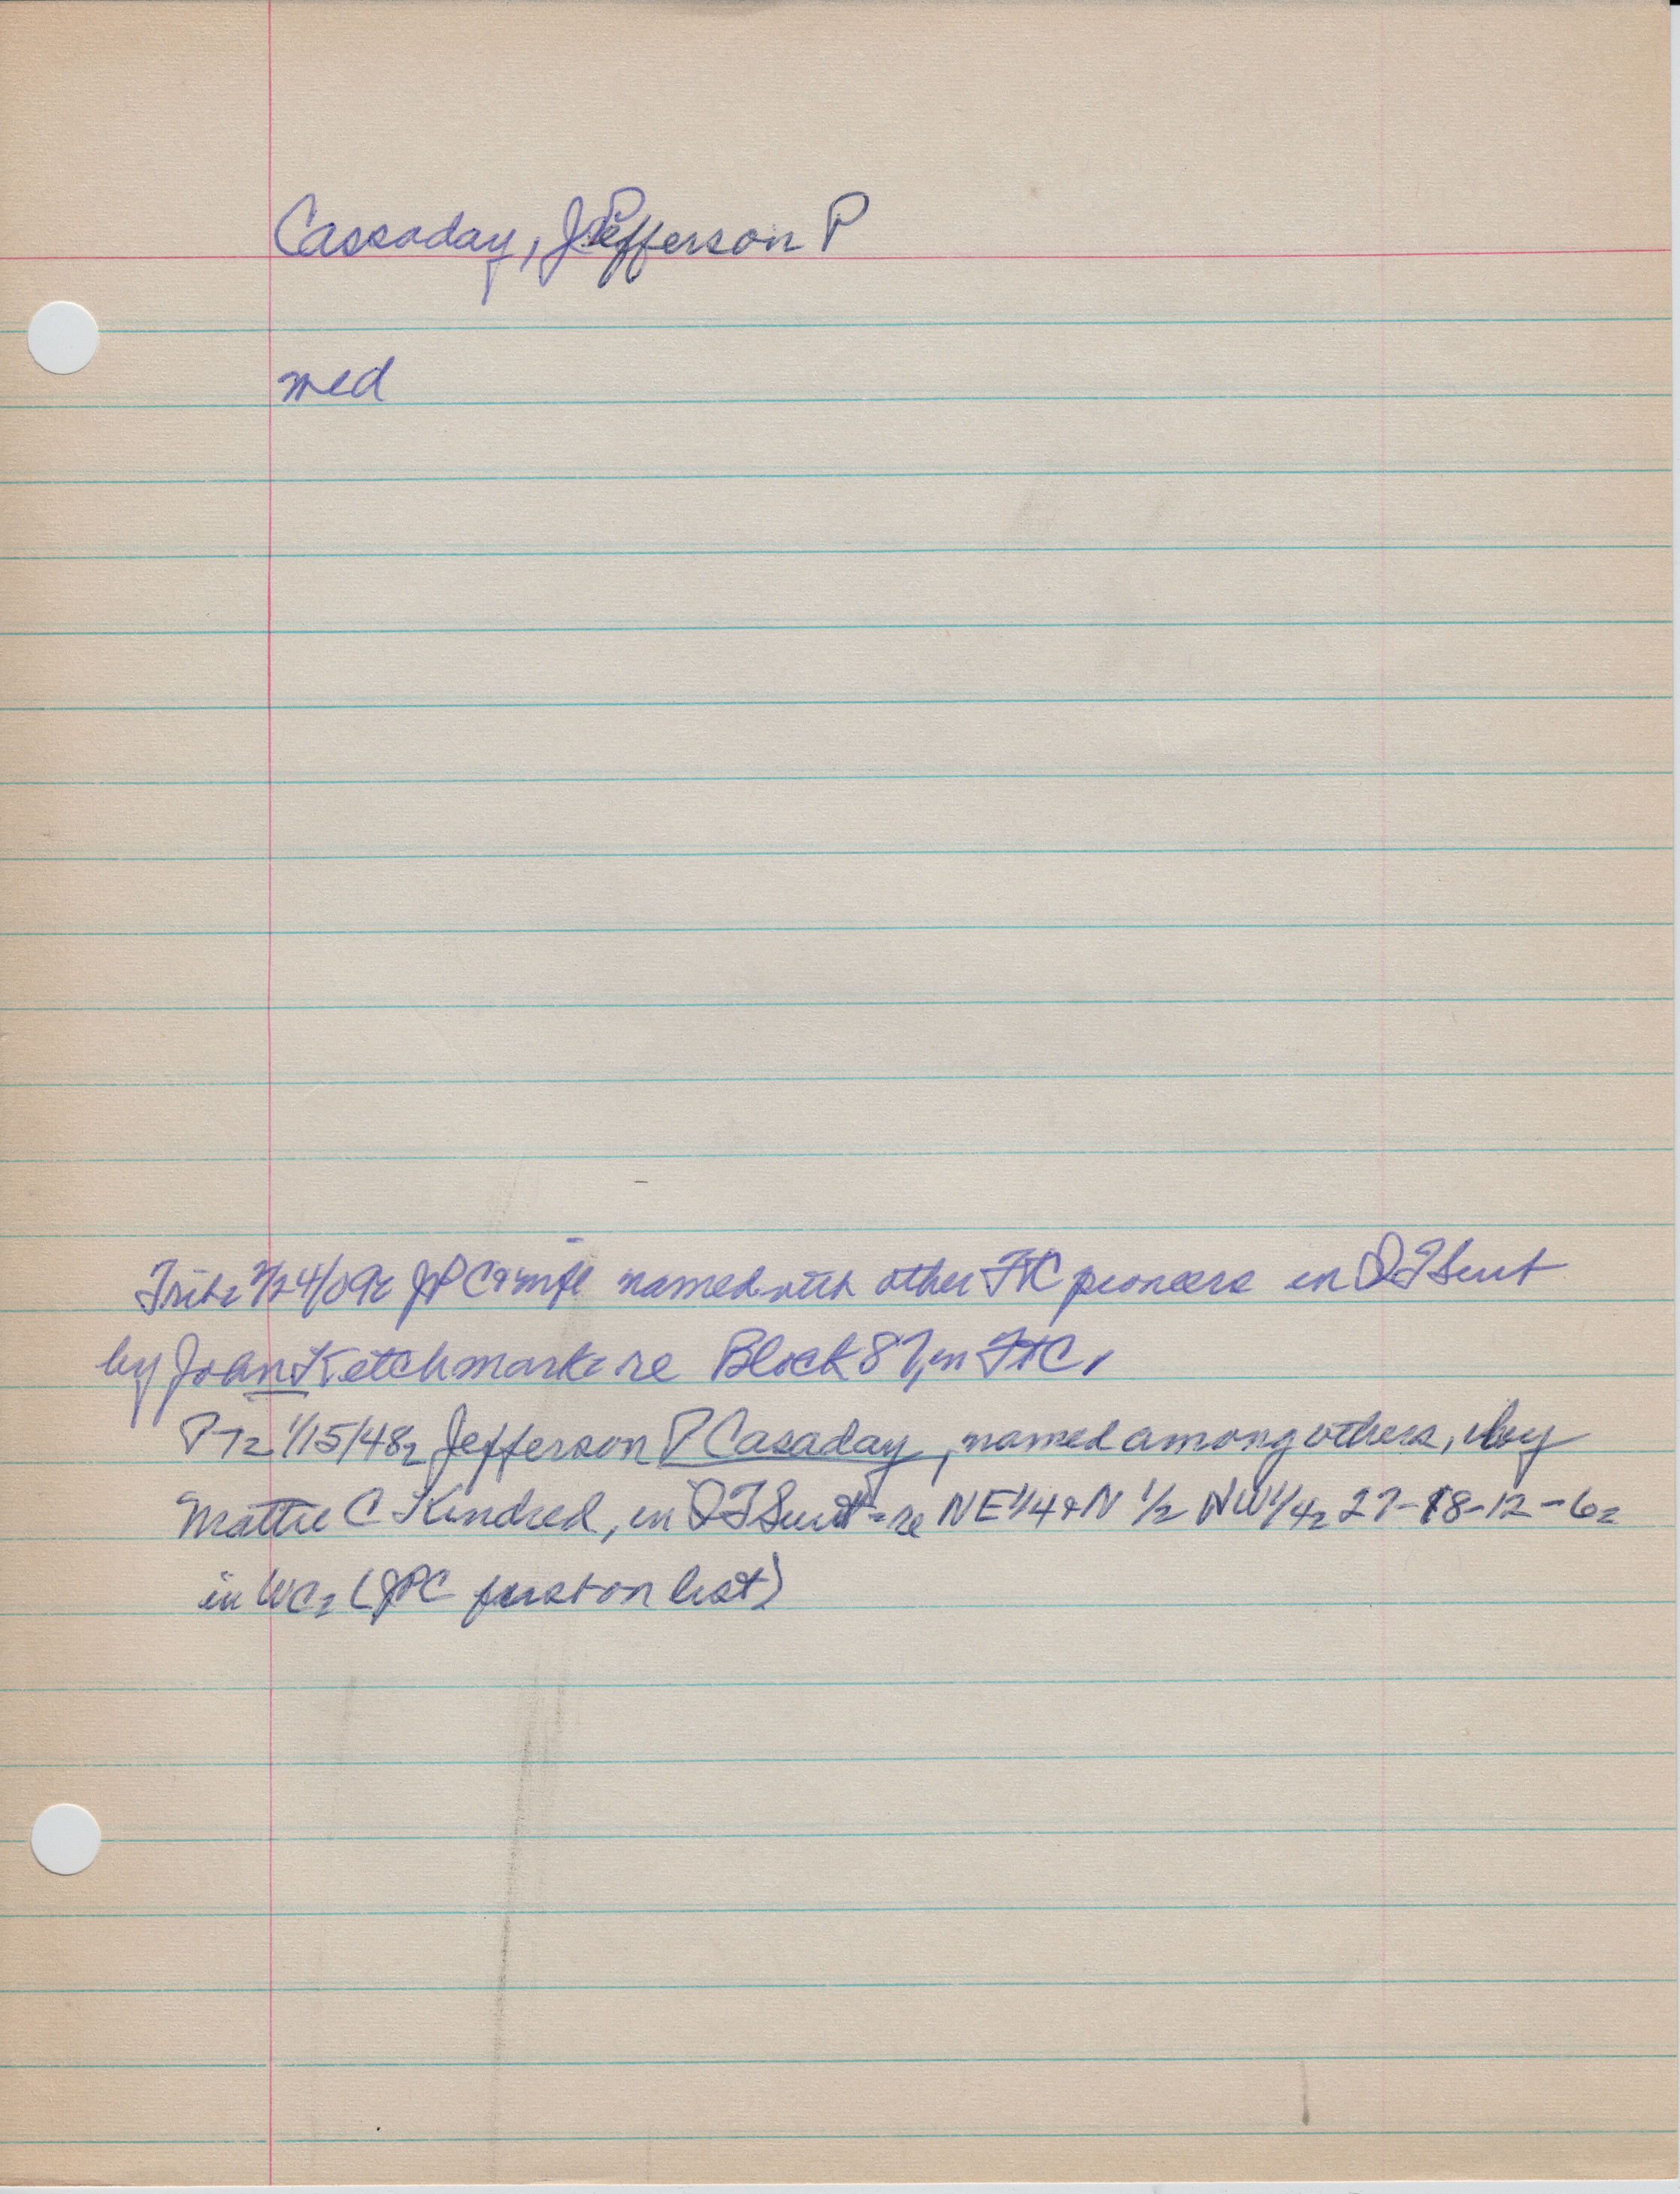 Cassaday, Jefferson P
med
Trib 2/24/09 JP C & wife named with other FtC pioneers in QTSuit
by John Ketchmark re Block 87, in FtC,
PT 1/15/48 Jefferson P Casaday, named among others, by
Mattie C Kindred, in QTSuit re NE 1/4 & N 1/2 NW 1/4 27-18-12-6
in WC (JPC first on list)